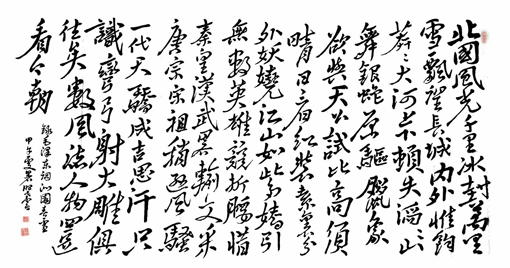 北國風光千里冰封萬里
雪飄望長城內外惟餘
莽々大河上下頓失滔々山
舞銀蛇原驅臘象
欲與天公試比高須
晴日看紅裝素裹分
外妖嬈江山如此多嬌引
無數英雄競折腰惜
秦皇漢武略輸文采
唐宗宋祖稍遜風騷
一代天驕成吉思汗只
識彎弓射大雕俱
往矣數風流人物還
看今朝
錄毛澤東詞沁園春雪
甲午夏